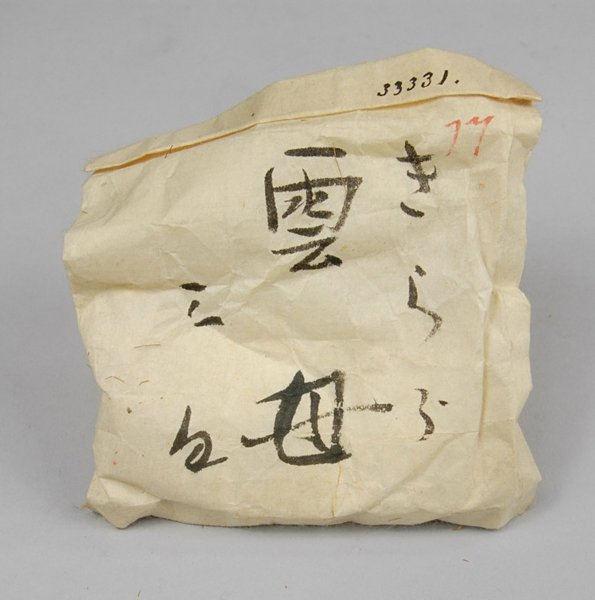 33331.
77
きらら
雲母
三